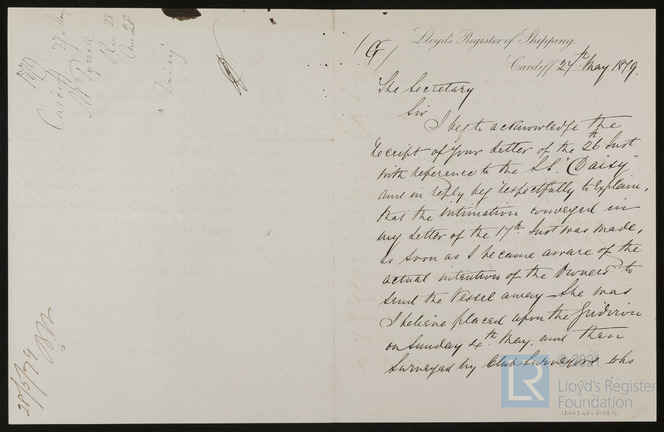 1879
Cardiff 27 May
Rec 28
Ans 28
"Daisy"
28/5/79
(G)
Lloyd's Register of Shipping.
Cardiff 27th May 1879.
The Secretary
Sir
I beg to acknowledge the
receipt of your letter of the 26th Inst
with reference to the S.S. "Daisy"
and in reply beg respectfully to explain,
that the intimation conveyed in
my letter of the 17th Inst was made,
as soon as I became aware of the
actual intention of the Owners to
send the Vessel away - She was
I believe placed upon the Gridiron
on Sunday 4th May, and then
Surveyed by Club Surveyors who
LR
© 2021
Lloyd's Register
Foundation